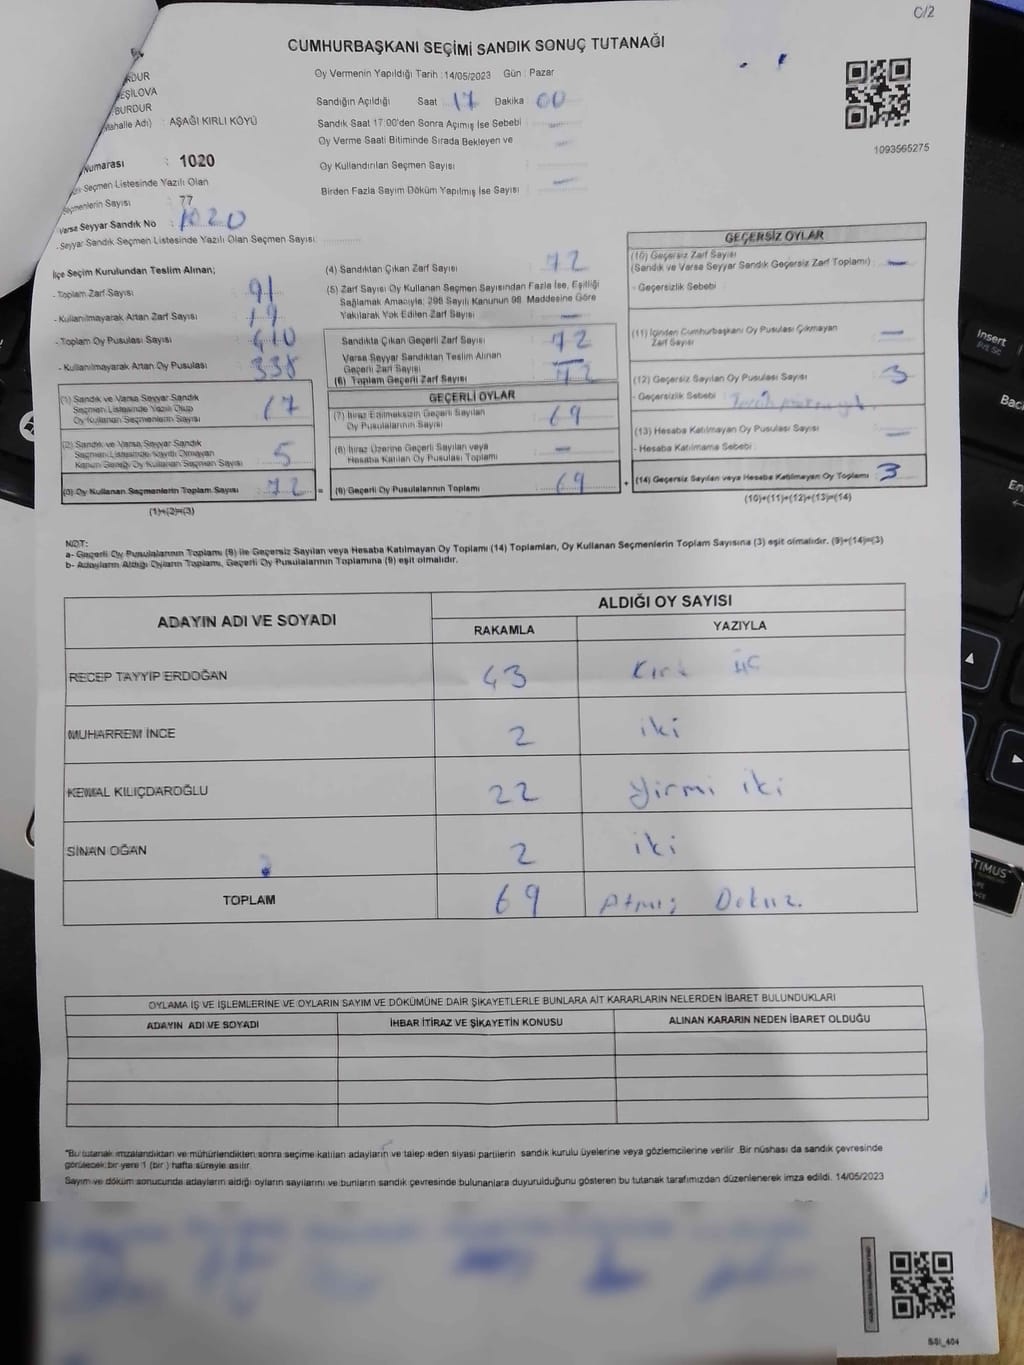 C/2
CUMHURBAŞKANI SEÇİMİ SANDIK SONUÇ TUTANAĞI
Oy Vermenin Yapıldığı Tarih : 14/05/2023 Gün : Pazar
BURDUR
Mahalle Adı) : AŞAĞI KIRLI KÖYÜ
Sandığın Açıldığı Saat 17 Dakika 00
Sandık Saat 17:00'den Sonra Açımış İse Sebebi
Oy Verme Saati Bitiminde Sırada Bekleyen ve
Oy Kullandırılan Seçmen Sayısı
Birden Fazla Sayım Döküm Yapılmış İse Sayısı
1093565275
Numarası : 1020
Seçmen Listesinde Yazılı Olan
Seçmenlerin Sayısı : 77
Varsa Seyyar Sandık No : 1020
- Seyyar Sandık Seçmen Listesinde Yazılı Olan Seçmen Sayısı:
İlçe Seçim Kurulundan Teslim Alınan;
- Toplam Zarf Sayısı 91
- Kullanılmayarak Artan Zarf Sayısı 19
- Toplam Oy Pusulası Sayısı 410
- Kullanılmayarak Artan Oy Pusulası 338
(1) Sandık ve Varsa Seyyar Sandık
Seçmen Listesinde Yazılı Olup
Oy Kullanan Seçmenlerin Sayısı 67
(2) Sandık ve Varsa Seyyar Sandık
Seçmen Listesinde Kayıtlı Olmayan
Kanun Gereği Oy Kullanan Seçmen Sayısı 5
(3) Oy Kullanan Seçmenlerin Toplam Sayısı 72
(1)+(2)=(3)
(4) Sandıktan Çıkan Zarf Sayısı 72
(5) Zarf Sayısı Oy Kullanan Seçmen Sayısından Fazla İse, Eşitliği
Sağlamak Amacıyla; 298 Sayılı Kanunun 98. Maddesine Göre
Yakılarak Yok Edilen Zarf Sayısı —
Sandıkta Çıkan Geçerli Zarf Sayısı 72
Varsa Seyyar Sandıktan Teslim Alınan
Geçerli Zarf Sayısı —
(6) Toplam Geçerli Zarf Sayısı 72
GEÇERLİ OYLAR
(7) İtiraz Edilmeksizin Geçerli Sayılan
Oy Pusulalarının Sayısı 69
(8) İtiraz Üzerine Geçerli Sayılan veya
Hesaba Katılan Oy Pusulası Toplamı —
= (9) Geçerli Oy Pusulalarının Toplamı 69
GEÇERSİZ OYLAR
(10) Geçersiz Zarf Sayısı
(Sandık ve Varsa Seyyar Sandık Geçersiz Zarf Toplamı) —
- Geçersizlik Sebebi :
(11) İçinden Cumhurbaşkanı Oy Pusulası Çıkmayan
Zarf Sayısı —
(12) Geçersiz Sayılan Oy Pusulası Sayısı 3
- Geçersizlik Sebebi :
(13) Hesaba Katılmayan Oy Pusulası Sayısı —
- Hesaba Katılmama Sebebi :
+ (14) Geçersiz Sayılan veya Hesaba Katılmayan Oy Toplamı 3
(10)+(11)+(12)+(13)=(14)
NOT:
a- Geçerli Oy Pusulalarının Toplamı (9) ile Geçersiz Sayılan veya Hesaba Katılmayan Oy Toplamı (14) Toplamları, Oy Kullanan Seçmenlerin Toplam Sayısına (3) eşit olmalıdır. (9)+(14)=(3)
b- Adayların Aldığı Oyların Toplamı, Geçerli Oy Pusulalarının Toplamına (9) eşit olmalıdır.
ADAYIN ADI VE SOYADI ALDIĞI OY SAYISI
RAKAMLA YAZIYLA
RECEP TAYYİP ERDOĞAN 43 Kırk üç
MUHARREM İNCE 2 iki
KEMAL KILIÇDAROĞLU 22 yirmi iki
SİNAN OĞAN 2 iki
TOPLAM 69 Atmış Dokuz.
OYLAMA İŞ VE İŞLEMLERİNE VE OYLARIN SAYIM VE DÖKÜMÜNE DAİR ŞİKAYETLERLE BUNLARA AİT KARARLARIN NELERDEN İBARET BULUNDUKLARI
ADAYIN ADI VE SOYADI İHBAR İTİRAZ VE ŞİKAYETİN KONUSU ALINAN KARARIN NEDEN İBARET OLDUĞU
"Bu tutanak imzalandıktan ve mühürlendikten sonra seçime katılan adayların ve talep eden siyasi partilerin sandık kurulu üyelerine veya gözlemcilerine verilir. Bir nüshası da sandık çevresinde
görülecek bir yere 1 (bir ) hafta süreyle asılır.
Sayım ve döküm sonucunda adayların aldığı oyların sayılarını ve bunların sandık çevresinde bulunanlara duyurulduğunu gösteren bu tutanak tarafımızdan düzenlenerek imza edildi. 14/05/2023
SSI_404
Insert
Prt Sc